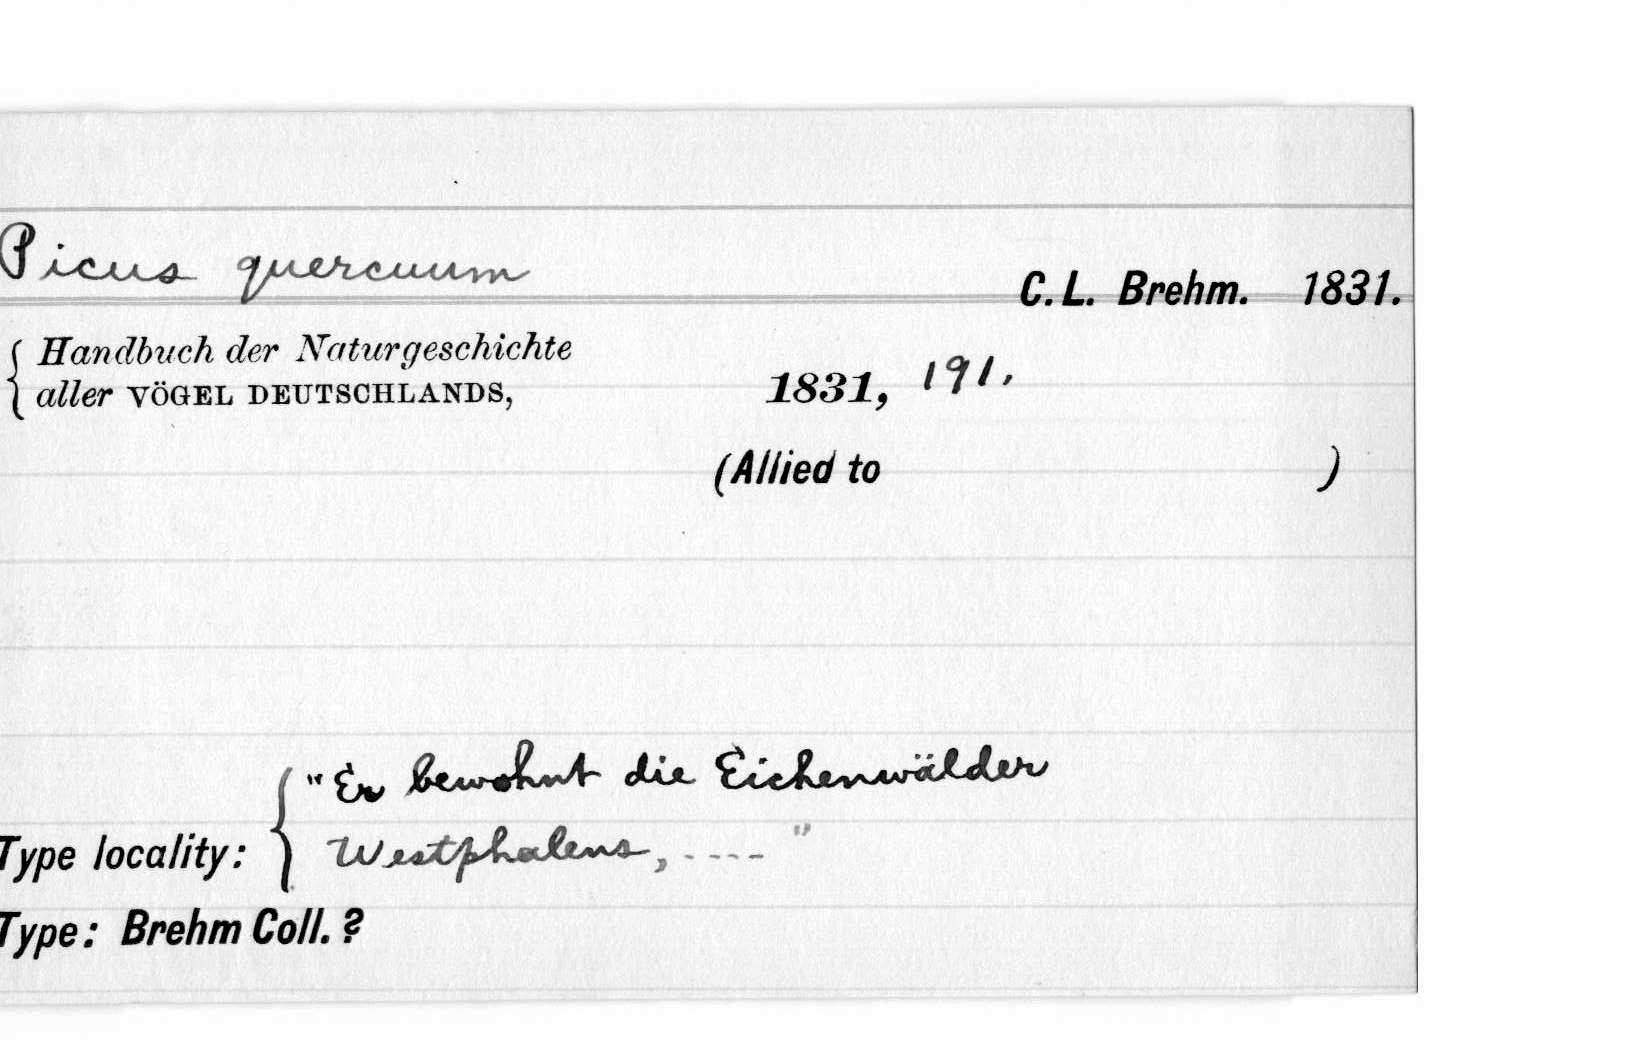 Picus quercuum
C. L. Brehm. 1831.
Handbuch der Naturgeschichte
aller VÖGEL DEUTSCHLANDS,
1831, 191.
(Allied to )
"Er bewohnt die Eichenwälder
Type locality: Westphalens, ---- "
Type: Brehm Coll. ?